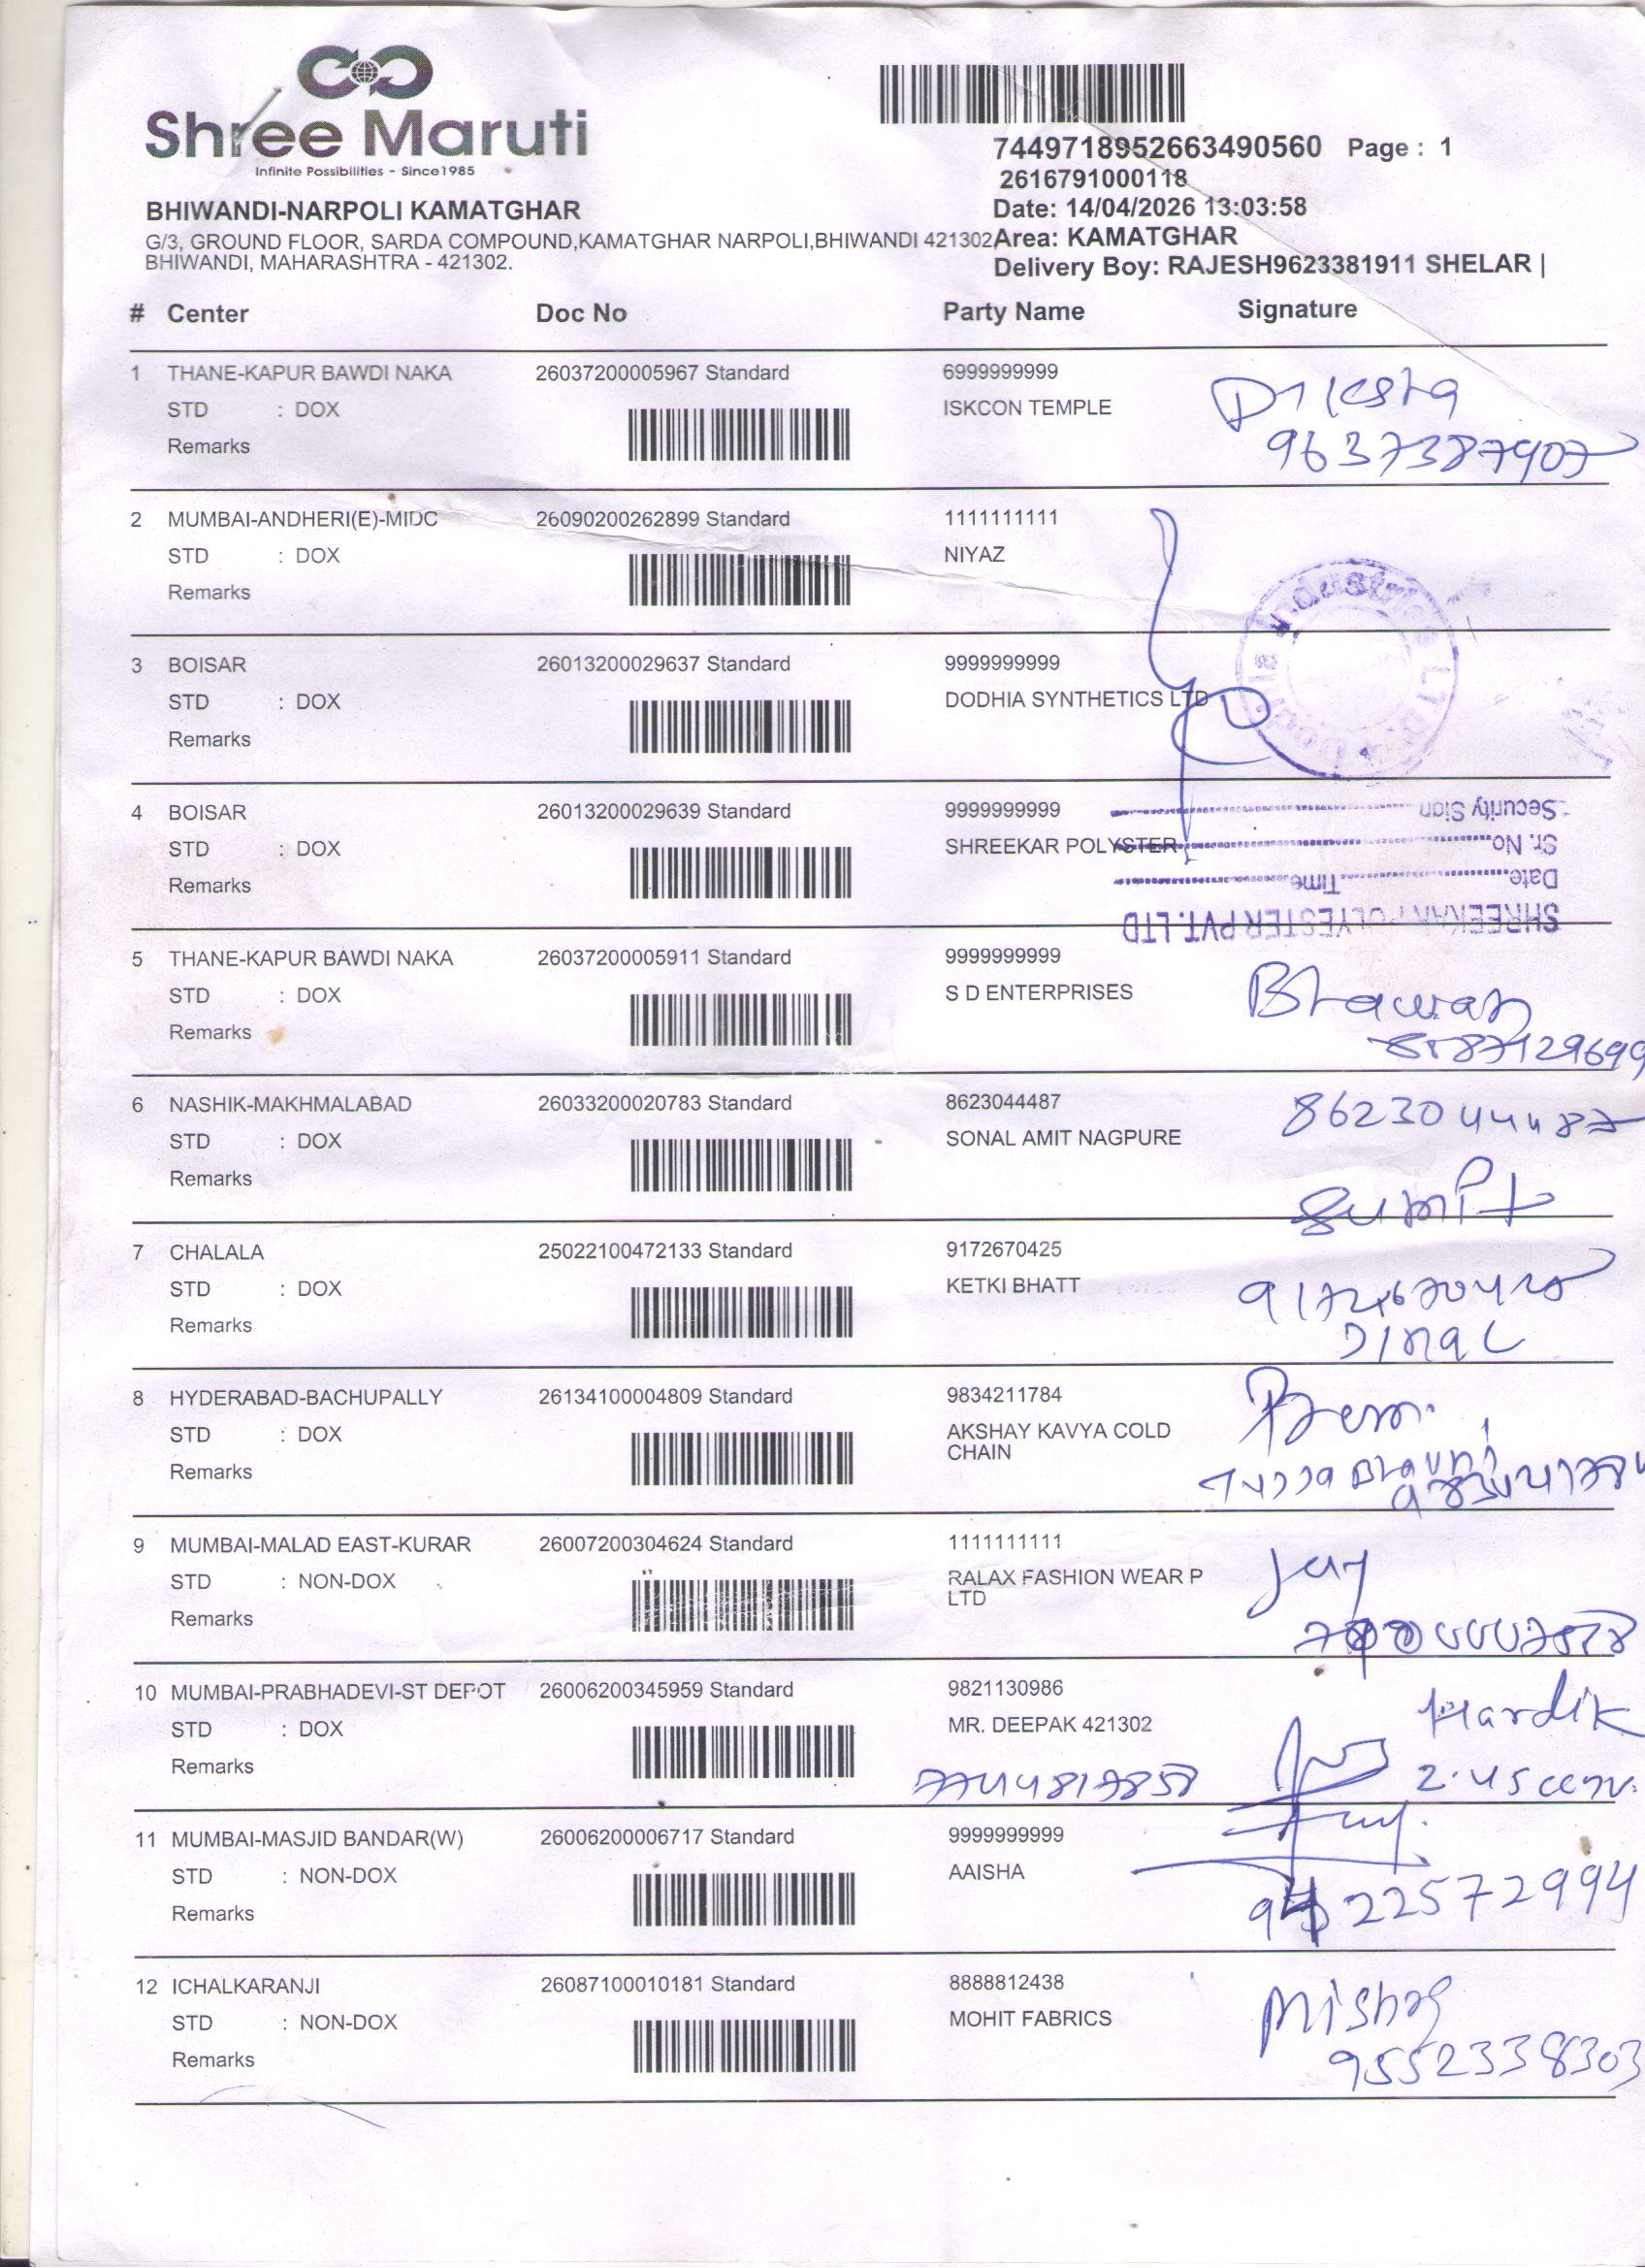 Shree Maruti
Infinite Possibilities - Since1985
7449718952663490560 Page : 1
2616791000118
BHIWANDI-NARPOLI KAMATGHAR
Date: 14/04/2026 13:03:58
G/3, GROUND FLOOR, SARDA COMPOUND,KAMATGHAR NARPOLI,BHIWANDI 421302
Area: KAMATGHAR
BHIWANDI, MAHARASHTRA - 421302.
Delivery Boy: RAJESH9623381911 SHELAR |
# Center Doc No Party Name Signature
1 THANE-KAPUR BAWDI NAKA 26037200005967 Standard 6999999999
STD : DOX ISKCON TEMPLE Diksha
Remarks 9637387907
2 MUMBAI-ANDHERI(E)-MIDC 26090200262899 Standard 1111111111
STD : DOX NIYAZ
Remarks
Industries LTD
3 BOISAR 26013200029637 Standard 9999999999
STD : DOX DODHIA SYNTHETICS LTD
Remarks
4 BOISAR 26013200029639 Standard 9999999999
Security Sign
STD : DOX SHREEKAR POLYSTER
Sr. No.
Remarks
Date Time
SHREEKAR POLYESTER PVT. LTD
5 THANE-KAPUR BAWDI NAKA 26037200005911 Standard 9999999999
STD : DOX S D ENTERPRISES Bhawan
Remarks
6 NASHIK-MAKHMALABAD 26033200020783 Standard 8623044487
8623044487
STD : DOX SONAL AMIT NAGPURE
Remarks Sumit
7 CHALALA 25022100472133 Standard 9172670425
STD : DOX KETKI BHATT 9172670425
Remarks Dinal
8 HYDERABAD-BACHUPALLY 26134100004809 Standard 9834211784
STD : DOX AKSHAY KAVYA COLD CHAIN Prem
Remarks
9 MUMBAI-MALAD EAST-KURAR 26007200304624 Standard 1111111111
STD : NON-DOX RALAX FASHION WEAR P LTD Jay
Remarks
10 MUMBAI-PRABHADEVI-ST DEPOT 26006200345959 Standard 9821130986
STD : DOX MR. DEEPAK 421302 Hardik
Remarks 7744817858
11 MUMBAI-MASJID BANDAR(W) 26006200006717 Standard 9999999999
STD : NON-DOX AAISHA
Remarks
12 ICHALKARANJI 26087100010181 Standard 8888812438
STD : NON-DOX MOHIT FABRICS Mishra
Remarks 9552338303